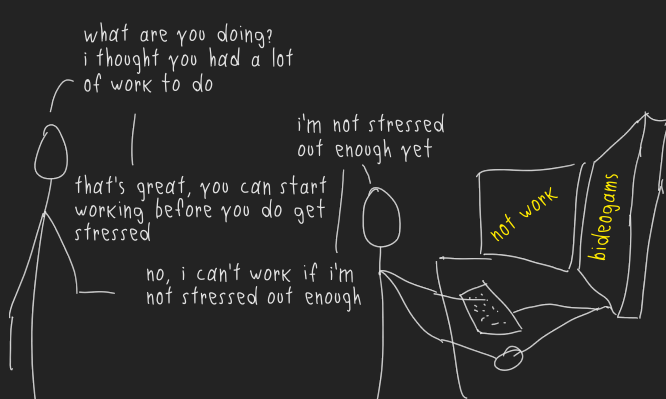 what are you doing?
i thought you had a lot
of work to do
i'm not stressed
out enough yet
that's great, you can start
working before you do get
stressed
no, i can't work if i'm
not stressed out enough
not work
bideogams